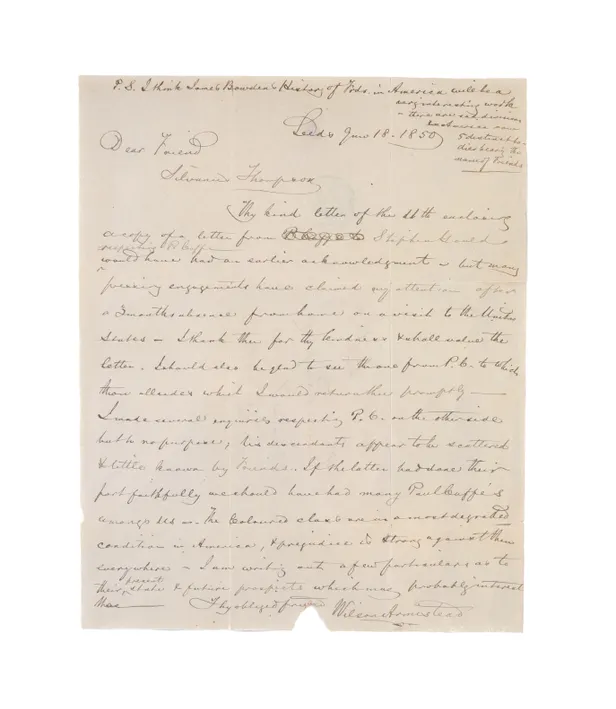 P.S. I think James Bowden's History of Frds. in America will be a
very interesting work
- there are sad divisions
in America now
5 distinct bo-
dies bearing the
name of Friends
Leeds Jan 18. 1850
Dear Friend
Silvanus Thompson
Thy kind letter of the 11th enclosing
a copy of a letter from Stephen Gould
respecting P. Cuffe
would have had an earlier acknowledgment - but many
pressing engagements have claimed my attention after
a 3 months absence from home on a visit to the United
States - I thank thee for thy kindness & shall value the
letter. I should also be glad to see the one from P. C. to which
thou alludes which I would return thee promptly -
I made several enquiries respecting P. C. on the other side
but to no purpose, his descendants appear to be scattered
& little known by Friends. If the latter had done their
part faithfully we should have had many Paul Cuffe's
amongst us - The Coloured class are in a most degraded
condition in America, & prejudice is strong against them
everywhere - I am writing out a few particulars as to
their present state & future prospects which may probably interest
thee
Thy obliged friend Wilson Armistead